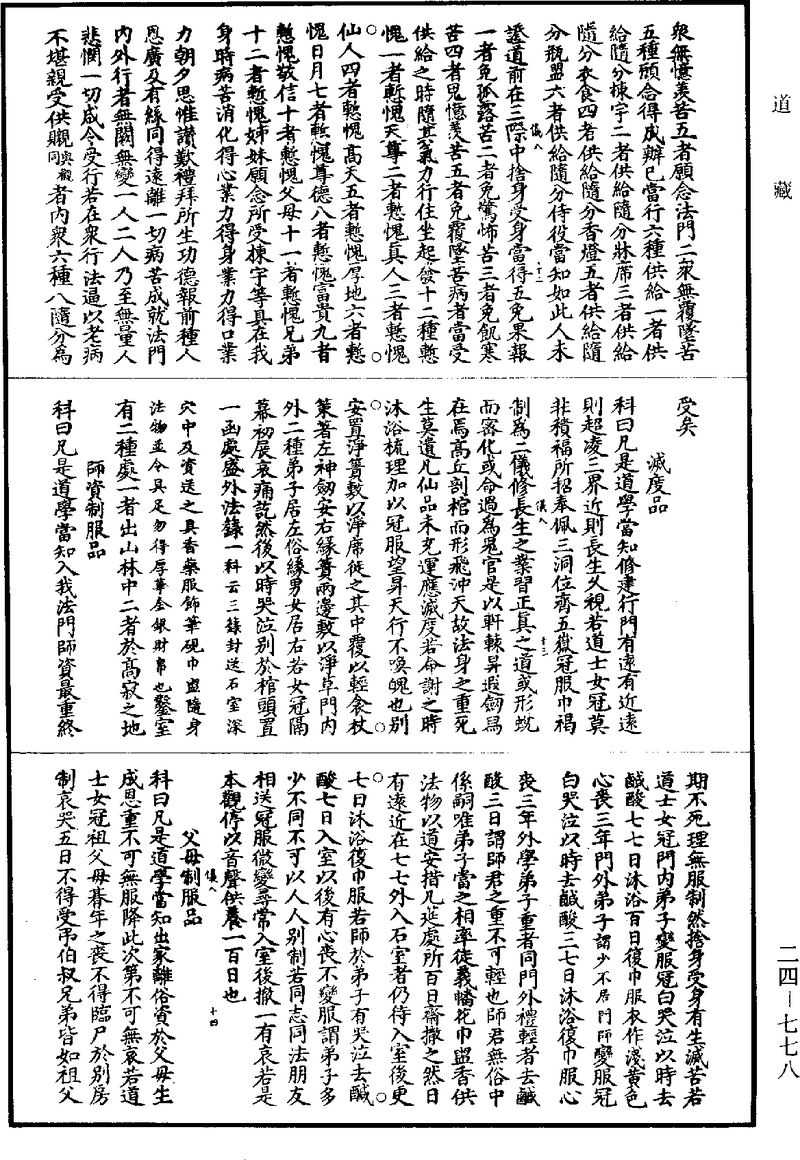 衆無憶羡苦五者願念法門二衆無覆墜苦
五種願念得成辦已當行六種供給一者供
給隨分棟宇二者供給隨分牀席三者供給
隨分衣食四者供給隨分香燈五者供給隨
分瓶盥六者供給隨分侍役當知如此人未
儀八 十二
證道前在三際中捨身受身當得五免果報
一者免孤露苦二者免驚怖苦三者免飢寒
苦四者免憶羡苦五者免覆墜苦病者當受
供給之時隨其氣力行住坐起發十二種慙
愧一者慙愧天尊二者慙愧真人三者慙愧
仙人四者慙愧高天五者慙愧厚地六者慙
愧日月七者慙愧尊德八者慙愧富貴九者
慙愧敬信十者慙愧父母十一者慙愧兄弟
十二者慙愧姊妹願念所受棟宇等具在我
身時病苦消化得心業力得身業力得口業
力朝夕思惟讃歎禮拜所生功德報前種人
恩廣及有緣同得遠離一切病苦成就法門
内外行者無闕無變一人二人乃至無量人
悲憫一切咸令受行若在衆行法逼以老病
不堪親受供䞋同與襯者内衆六種八隨分為
受矣
滅度品
科曰凡是道學當知修建行門有遠有近遠
則超凌三界近則長生久視若道士女冠莫
非積福所招奉佩三洞位齊五嶽冠服巾褐
儀八 十三
制為二儀修長生之業習正真之道或形蛻
而密化或命過為鬼官是以軒轅昇遐劒舄
在焉高丘剖棺而形飛沖天故法身之重死
生莫遺凡仙品未充運應滅度若命謝之時
沐浴梳理加以冠服望昇天行不喚魄也别
安置淨簀敷以淨席徙之其中覆以輕衾杖
策著左神劒安右緣簀兩邊敷以淨草門内
外二種弟子居左俗緣男女居右若女冠隔
幕初展哀痛訖然後以時哭泣别於棺頭置
一函處盛外法籙一科云三籙封送石室深
穴中及資送之具香藥服飾筆硯巾盥隨身
法物並令具足勿得厚華金銀財帛也鑿室
有二種處一者出山林中二者於高寂之地
師資制服品
科曰凡是道學當知入我法門師資最重終
期不死理無服制然捨身受身有生滅苦若
道士女冠門内弟子變服冠白哭泣以時去
鹹酸七七日沐浴百日復巾服衣作淺黄色
心喪三年門外弟子謂少不居門師變服冠
白哭泣以時去鹹酸三七日沐浴復巾服心
喪三年外學弟子重者同門外禮輕者去鹹
酸三日謂師君之重不可輕也師君無俗中
係嗣唯弟子當之相率徒義幡花巾盥香供
法物以道安措凡延處所百日齋撤之然日
有遠近在七七外入石室者仍待入室後更
七日沐浴復巾服若師於弟子有哭泣去鹹
酸七日入室以後有心喪不變服謂弟子多
少不同不可以人人别制若同志同法朋友
相送冠服微變尋常入室後撤一有哀若是
本觀停以音聲供養一百日也
儀八 十四
父母制服品
科曰凡是道學當知出家離俗資於父母生
成恩重不可無服降此次第不可無哀若道
士女冠祖父母朞年之喪不得臨尸於别房
制哀哭五日不得受弔伯叔兄弟皆如祖父
道藏
二四－七七八